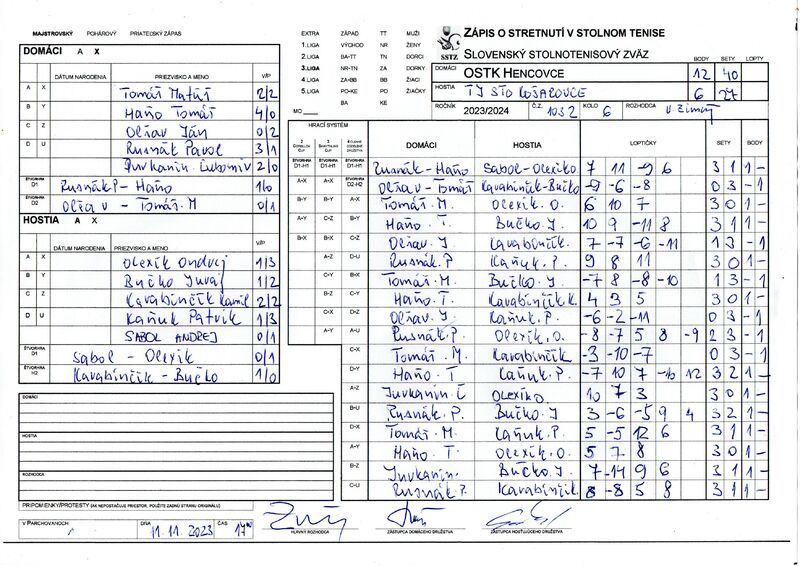 MAJSTROVSKÝ POHÁROVÝ PRIATEĽSKÝ ZÁPAS
EXTRA ZÁPAD TT MUŽI
1.LIGA VÝCHOD NR ŽENY
2.LIGA BA-TT TN DORCI
3.LIGA NR-TN ZA DORKY
4.LIGA ZA-BB BB ŽIACI
5.LIGA PO-KE PO ŽIAČKY
BA KE
MO
SSTZ
ZÁPIS O STRETNUTÍ V STOLNOM TENISE
SLOVENSKÝ STOLNOTENISOVÝ ZVÄZ
BODY SETY LOPTY
DOMÁCI OSTK HENCOVCE 12 40
HOSTIA TJ STO KOŠAROVCE 6 27
ROČNÍK 2023/2024 Č.Z. 1032 KOLO 6 ROZHODCA V. Zimný
DOMÁCI A X
DÁTUM NARODENIA PRIEZVISKO A MENO V/P
A X Tomáš Matúš 2/2
B Y Haňo Tomáš 4/0
C Z Oľšav Ján 0/2
D U Rusnák Pavol 3/1
Jurkanin Ľubomír 2/0
ŠTVORHRA D1 Rusnák P - Haňo 1/0
ŠTVORHRA D2 Oľšav - Tomáš M 0/1
HOSTIA A X
DÁTUM NARODENIA PRIEZVISKO A MENO V/P
A X Olexík Ondrej 1/3
B Y Bučko Juraj 1/2
C Z Karabinčík Kamil 2/2
D U Kaňuk Patrik 1/3
SABOL ANDREJ 0/1
ŠTVORHRA D1 Sabol - Olexik 0/1
ŠTVORHRA H2 Karabinčík - Bučko 1/0
DOMÁCI
HOSTIA
ROZHODCA
PRIPOMIENKY/PROTESTY (AK NEPOSTAČUJE PRIESTOR, POUŽITE ZADNÚ STRANU ORIGINÁLU)
HRACÍ SYSTÉM
DOMÁCI HOSTIA LOPTIČKY SETY BODY
Rusnák - Haňo Sabol - Olexík O 7 11 -9 6 3 1 1 -
Oľšav - Tomáš Karabinčík - Bučko -9 -6 -8 0 3 - 1
A-X Tomáš. M. Olexík. O. 6 10 7 3 0 1 -
B-Y Haňo. T. Bučko J. 10 9 -11 8 3 1 1 -
C-Z Oľšav. J. Karabinčík. 7 -7 -6 -11 1 3 - 1
D-U Rusnák. P. Kaňuk. P. 9 8 11 3 0 1 -
A-Y Tomáš. M. Bučko. J. -7 8 -8 -10 1 3 - 1
B-Z Haňo. T. Karabinčík K. 4 3 5 3 0 1 -
C-X Oľšav. J Kaňuk. P. -6 -2 -11 0 3 - 1
A-Y Rusnák. P. Olexík. O. -8 -7 5 8 -9 2 3 - 1
C-X Tomáš. M. Karabinčík -3 -10 -7 0 3 - 1
D-Y Haňo. T Kaňuk. P. -7 10 7 -10 12 3 2 1 -
A-Z Jurkanin. Ľ Olexík O 10 7 3 3 0 1 -
B-U Rusnák. P. Bučko. J 3 -6 -5 9 4 3 2 1 -
D-X Tomáš. M. Kaňuk. P. 5 -5 12 6 3 1 1 -
A-Y Haňo. T. Olexík. O. 5 7 8 3 0 1 -
B-Z Jurkanin. Bučko J. 7 -14 9 6 3 1 1 -
C-U Rusnák P. Karabinčík 8 -8 5 8 3 1 1 -
V PARCHOVANOCH DŇA 11.11.2023 ČAS 17
HLAVNÝ ROZHODCA ZÁSTUPCA DOMÁCEHO DRUŽSTVA ZÁSTUPCA HOSŤUJÚCEHO DRUŽSTVA